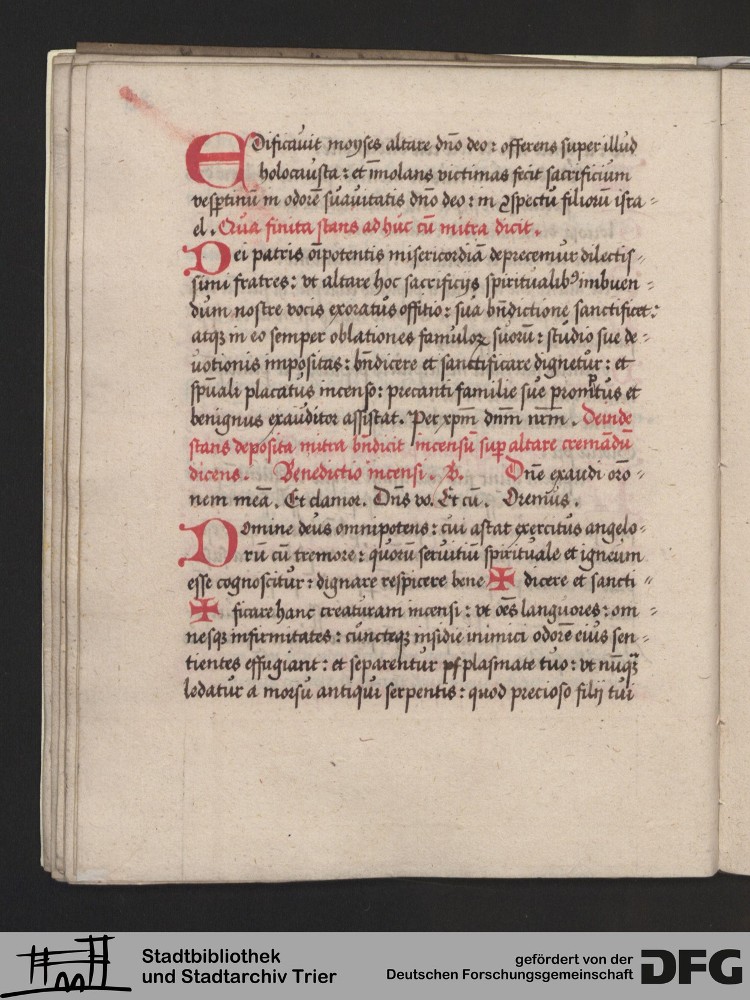 Edificauit moyses altare dño deo : offerens super illud
holocausta : et īmolans victimas fecit sacrificium
vesꝑtinū in odorē suauitatis dño deo : in ꝯspectu filiorū isra=
el . Qua finita stans ad huc cū mitra dicit .
Dei patris oīpotentis misericordiā deprecemur dilectis=
simi fratres : vt altare hoc sacrificijs spiritualibꝰ imbuen=
dum nostre vocis exoratus offitio : sua bñdictione sanctificet :
atqꝫ in eo semper oblationes famuloꝝ suorū : studio sue de=
uotionis impositas : bñdicere et sanctificare dignetur : et
spūali placatus incenso : precanti familie sue promptus et
benignus exauditor assistat . Per xp̄m dñm nr̄m . Deinde
stans deposita mitra bñdicit incensū suꝑ altare cremādū
dicens . Benedictio incensi . Dñe exaudi oro=
nem meā . Et clamor . Dñs vo. Et cū . Oremus .
Domine deus omnipotens : cui astat exercitus angelo=
rū cū tremore : quorū seruitiū spirituale et igneum
esse cognoscitur : dignare respicere bene ✠ dicere et sancti=
✠ ficare hanc creaturam incensi : vt oēs languores : om=
nesqꝫ infirmitates : cuncteqꝫ insidie inimici odorē eius sen=
tientes effugiant : et separentur plasmate tuo : vt nūqꝫ
ledatur a morsu antiqui serpentis : quod precioso filij tui
Stadtbibliothek
und Stadtarchiv Trier
gefördert von der
Deutschen Forschungsgemeinschaft
DFG